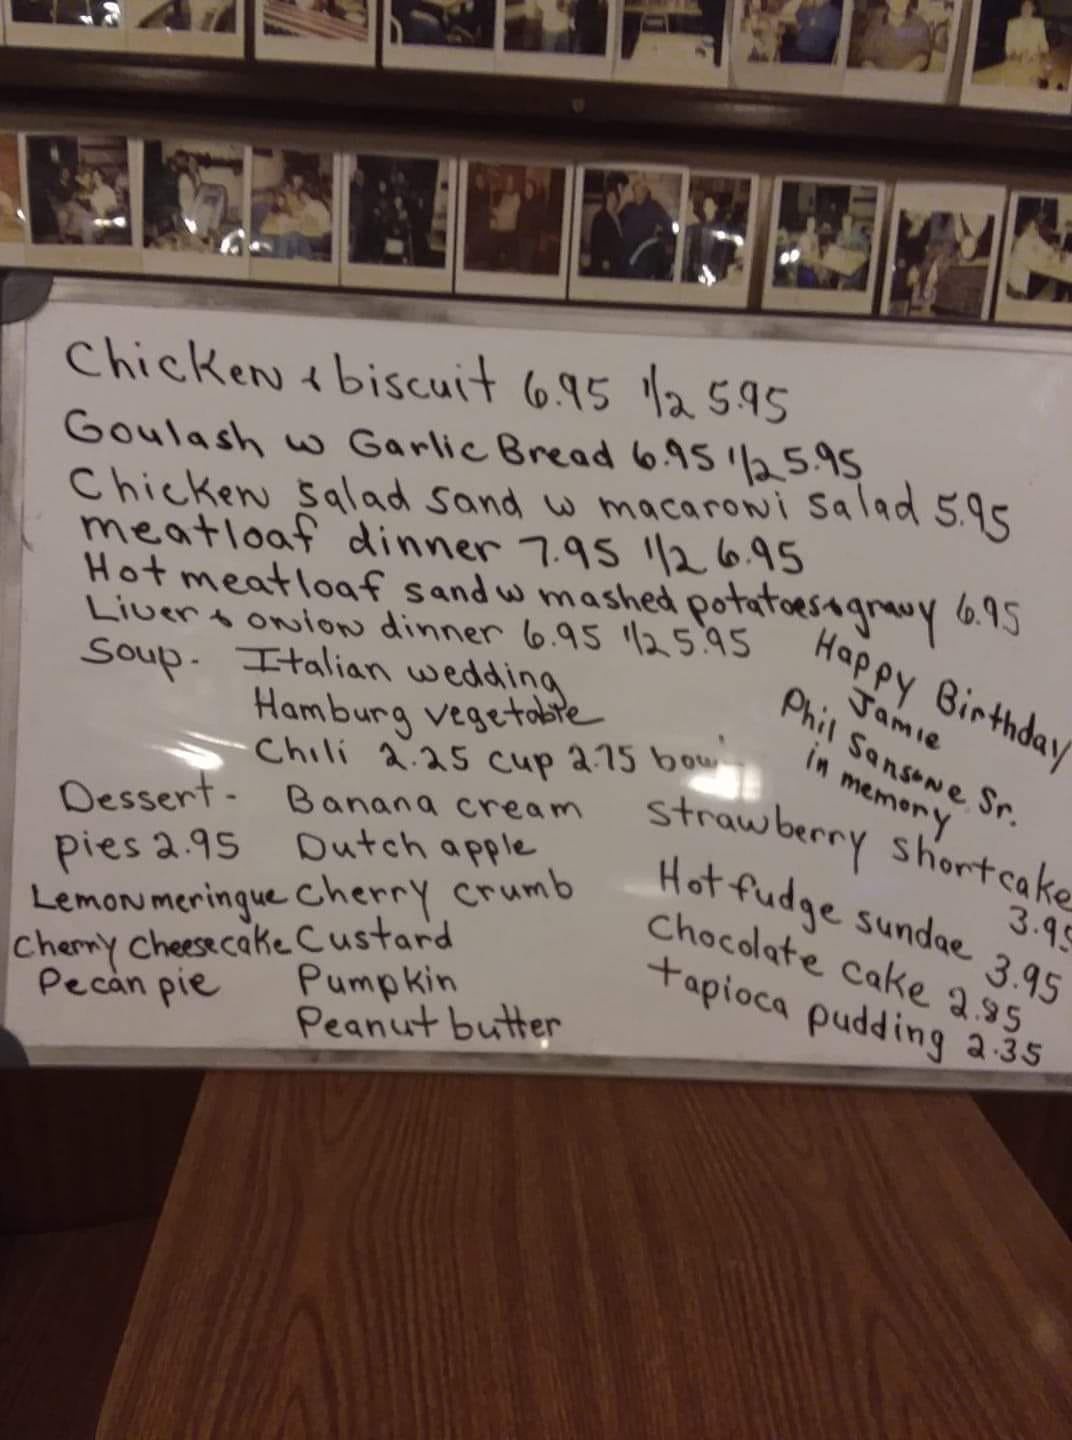 Chicken & biscuit 6.95 1/2 5.95
Goulash w Garlic Bread 6.95 1/2 5.95
Chicken salad sand w macaroni salad 5.95
meatloaf dinner 7.95 1/2 6.95
Hot meatloaf sand w mashed potatoes & gravy 6.95
Liver & onion dinner 6.95 1/2 5.95
Soup - Italian wedding
Hamburg vegetable
Chili 2.25 cup 2.75 bowl
Happy Birthday
Jamie
Phil Sansone Sr.
in memory
Dessert - Banana cream
pies 2.95 Dutch apple
Lemon meringue Cherry crumb
Cherry Cheesecake Custard
Pecan pie Pumpkin
Peanut butter
Strawberry shortcake
3.95
Hot fudge sundae 3.95
Chocolate cake 2.85
tapioca pudding 2.35